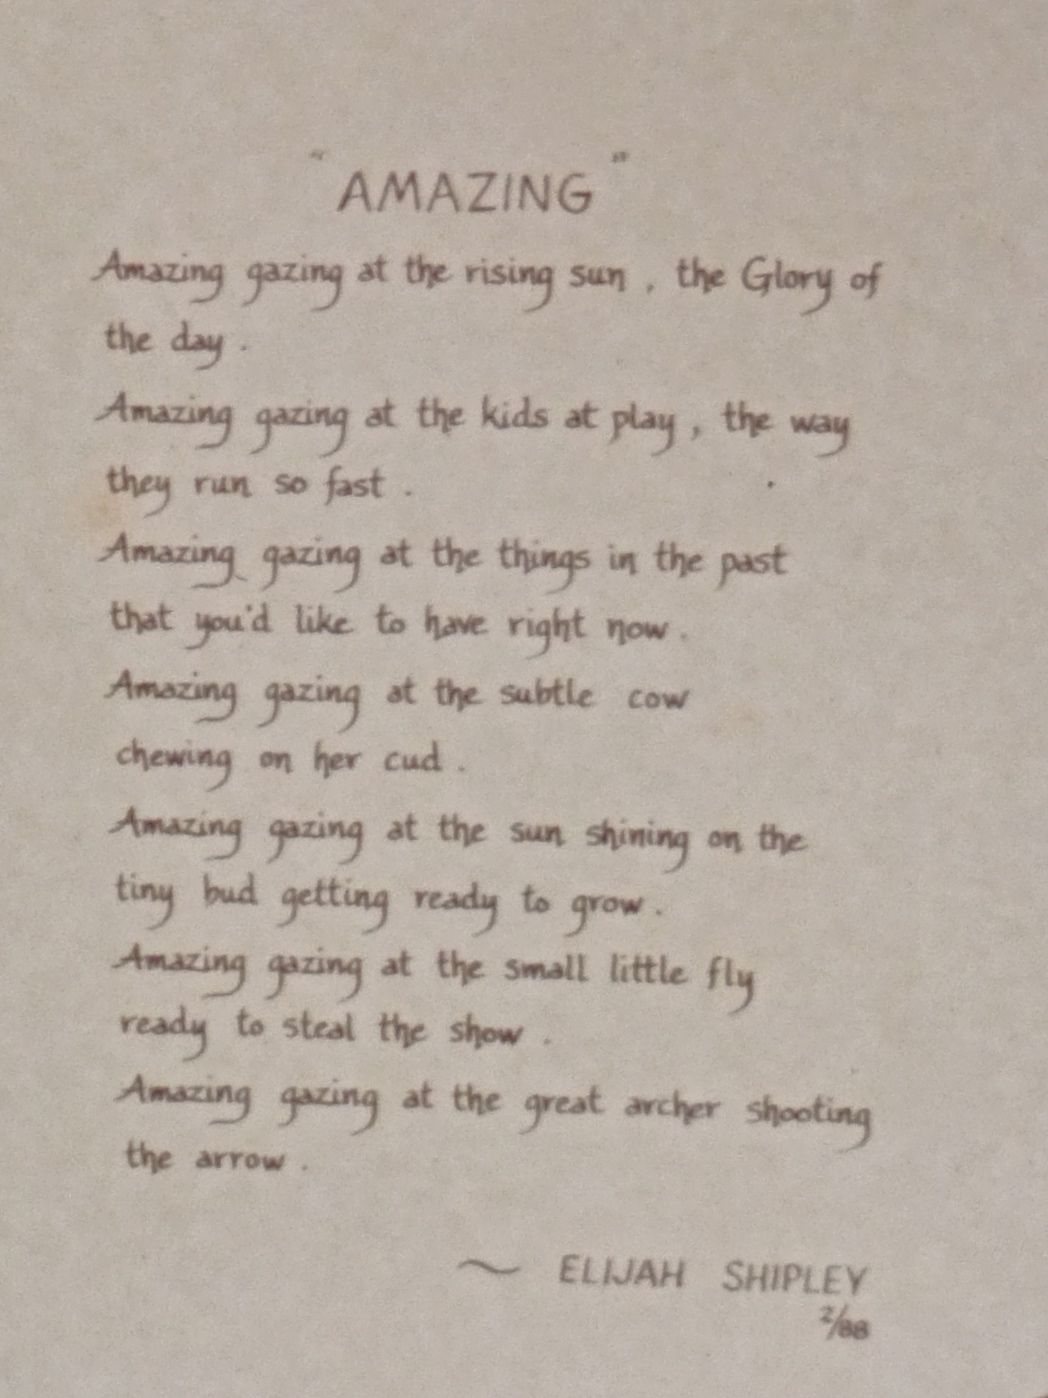 "AMAZING"
Amazing gazing at the rising sun, the Glory of
the day.
Amazing gazing at the kids at play, the way
they run so fast.
Amazing gazing at the things in the past
that you'd like to have right now.
Amazing gazing at the subtle cow
chewing on her cud.
Amazing gazing at the sun shining on the
tiny bud getting ready to grow.
Amazing gazing at the small little fly
ready to steal the show.
Amazing gazing at the great archer shooting
the arrow.
~ ELIJAH SHIPLEY
2/88